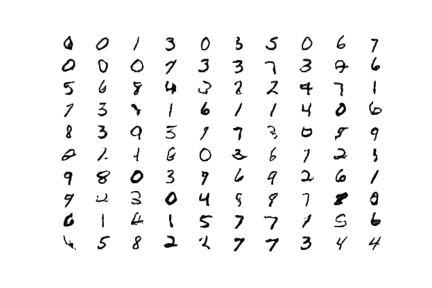 0 0 1 3 0 3 5 0 6 7
0 0 0 7 3 3 7 3 7 6
5 6 8 4 3 2 2 4 7 1
7 3 8 1 6 1 1 4 0 6
8 3 9 5 9 7 3 0 5 9
1 6 0 3 6 7 2 3
9 8 0 3 9 6 9 2 6 1
9 2 3 0 4 9 8 7 8 0
0 1 4 1 5 7 7 1 5 6
6 5 8 2 2 7 7 3 4 4